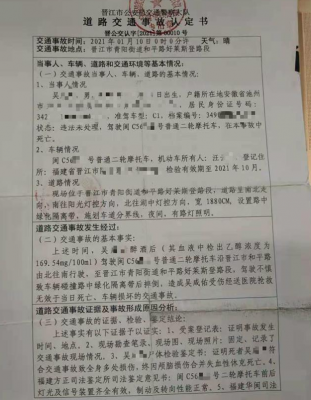 晋江市公安局交通警察大队
道路交通事故认定书
晋公交认字[2021]第00010号
交通事故时间：2021年01月10日0时0分许 天气：晴
交通事故地点：晋江市青阳街道和平路好莱斯登路段
当事人、车辆、道路和交通环境等基本情况：
（一）交通事故当事人、车辆、道路的基本情况：
1、当事人情况
吴 男， 日出生，户籍所在地安徽省池州
居民身份证号码：
342 ，准驾车型：C1，档案编号：
状态：违法未处理，驾驶闽C56 号普通二轮摩托车，在本事故中
死亡。
2、车辆情况
闽C56 号普通二轮摩托车，机动车所有人： 登记住
所：福建省晋江市 检验有效期至2021年10月。
3、道路情况
现场位于晋江市青阳街道和平路好莱斯登路段，道路呈南北走
向，南往阳光灯控方向，北往 灯控方向，宽1880CM，设置路中
绿化隔离带，施划车道分界线，夜间，有路灯照明。
道路交通事故发生经过：
（二）交通事故的基本事实：
上述时间，吴 醉酒后（吴血液中检出乙醇浓度为
169.54mg/100ml）驾驶闽C56 号普通二轮摩托车沿晋江市和平路
由北往南行驶，至晋江市青阳街道和平路好莱斯登路段，驾驶不慎
致车辆碰撞路中绿化隔离带后摔倒，造成吴 受伤经送医院抢救
无效于当日死亡、车辆损坏的交通事故。
道路交通事故证据及事故形成原因分析：
（三）交通事故的证据、检验、鉴定结论：
上述事实有以下证据予以证实：1、受案登记表：证明事故发生
时间、地点。2、现场勘查笔录、现场图、现场照片：固定、记录了
交通事故现场情况。3、吴 尸体检验鉴定书：证明死者吴 符
合交通事故致全身多处损伤，终因颅脑损伤合并失血性休克死亡。4、
福建方正司法鉴定所司法鉴定意见书：闽C56 号二轮摩托车前后
灯光及信号装置齐全有效，制动及转向性能正常。5、福建华闽司法